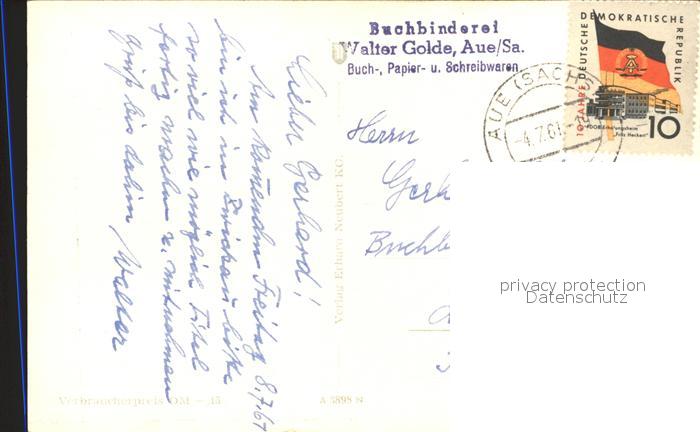 Buchbinderei
Walter Golde, Aue/Sa.
Buch-, Papier- u. Schreibwaren
10 JAHRE DEUTSCHE DEMOKRATISCHE REPUBLIK
FDGB-Erholungsheim
Fritz Heckert
10
AUE (SACHS)
-4.7.61
Lieber Gerhard!
Am kommenden Freitag 8.7.61
bin ich in Zwickau bitte
so viel wie möglich Titel
fertig machen u. mitnehmen
Gruß bis dahin Walter
Herrn
Buchb
Verlag Erhard Neubert KG.
Verbraucherpreis DM -,15
A 3898 N
privacy protection
Datenschutz